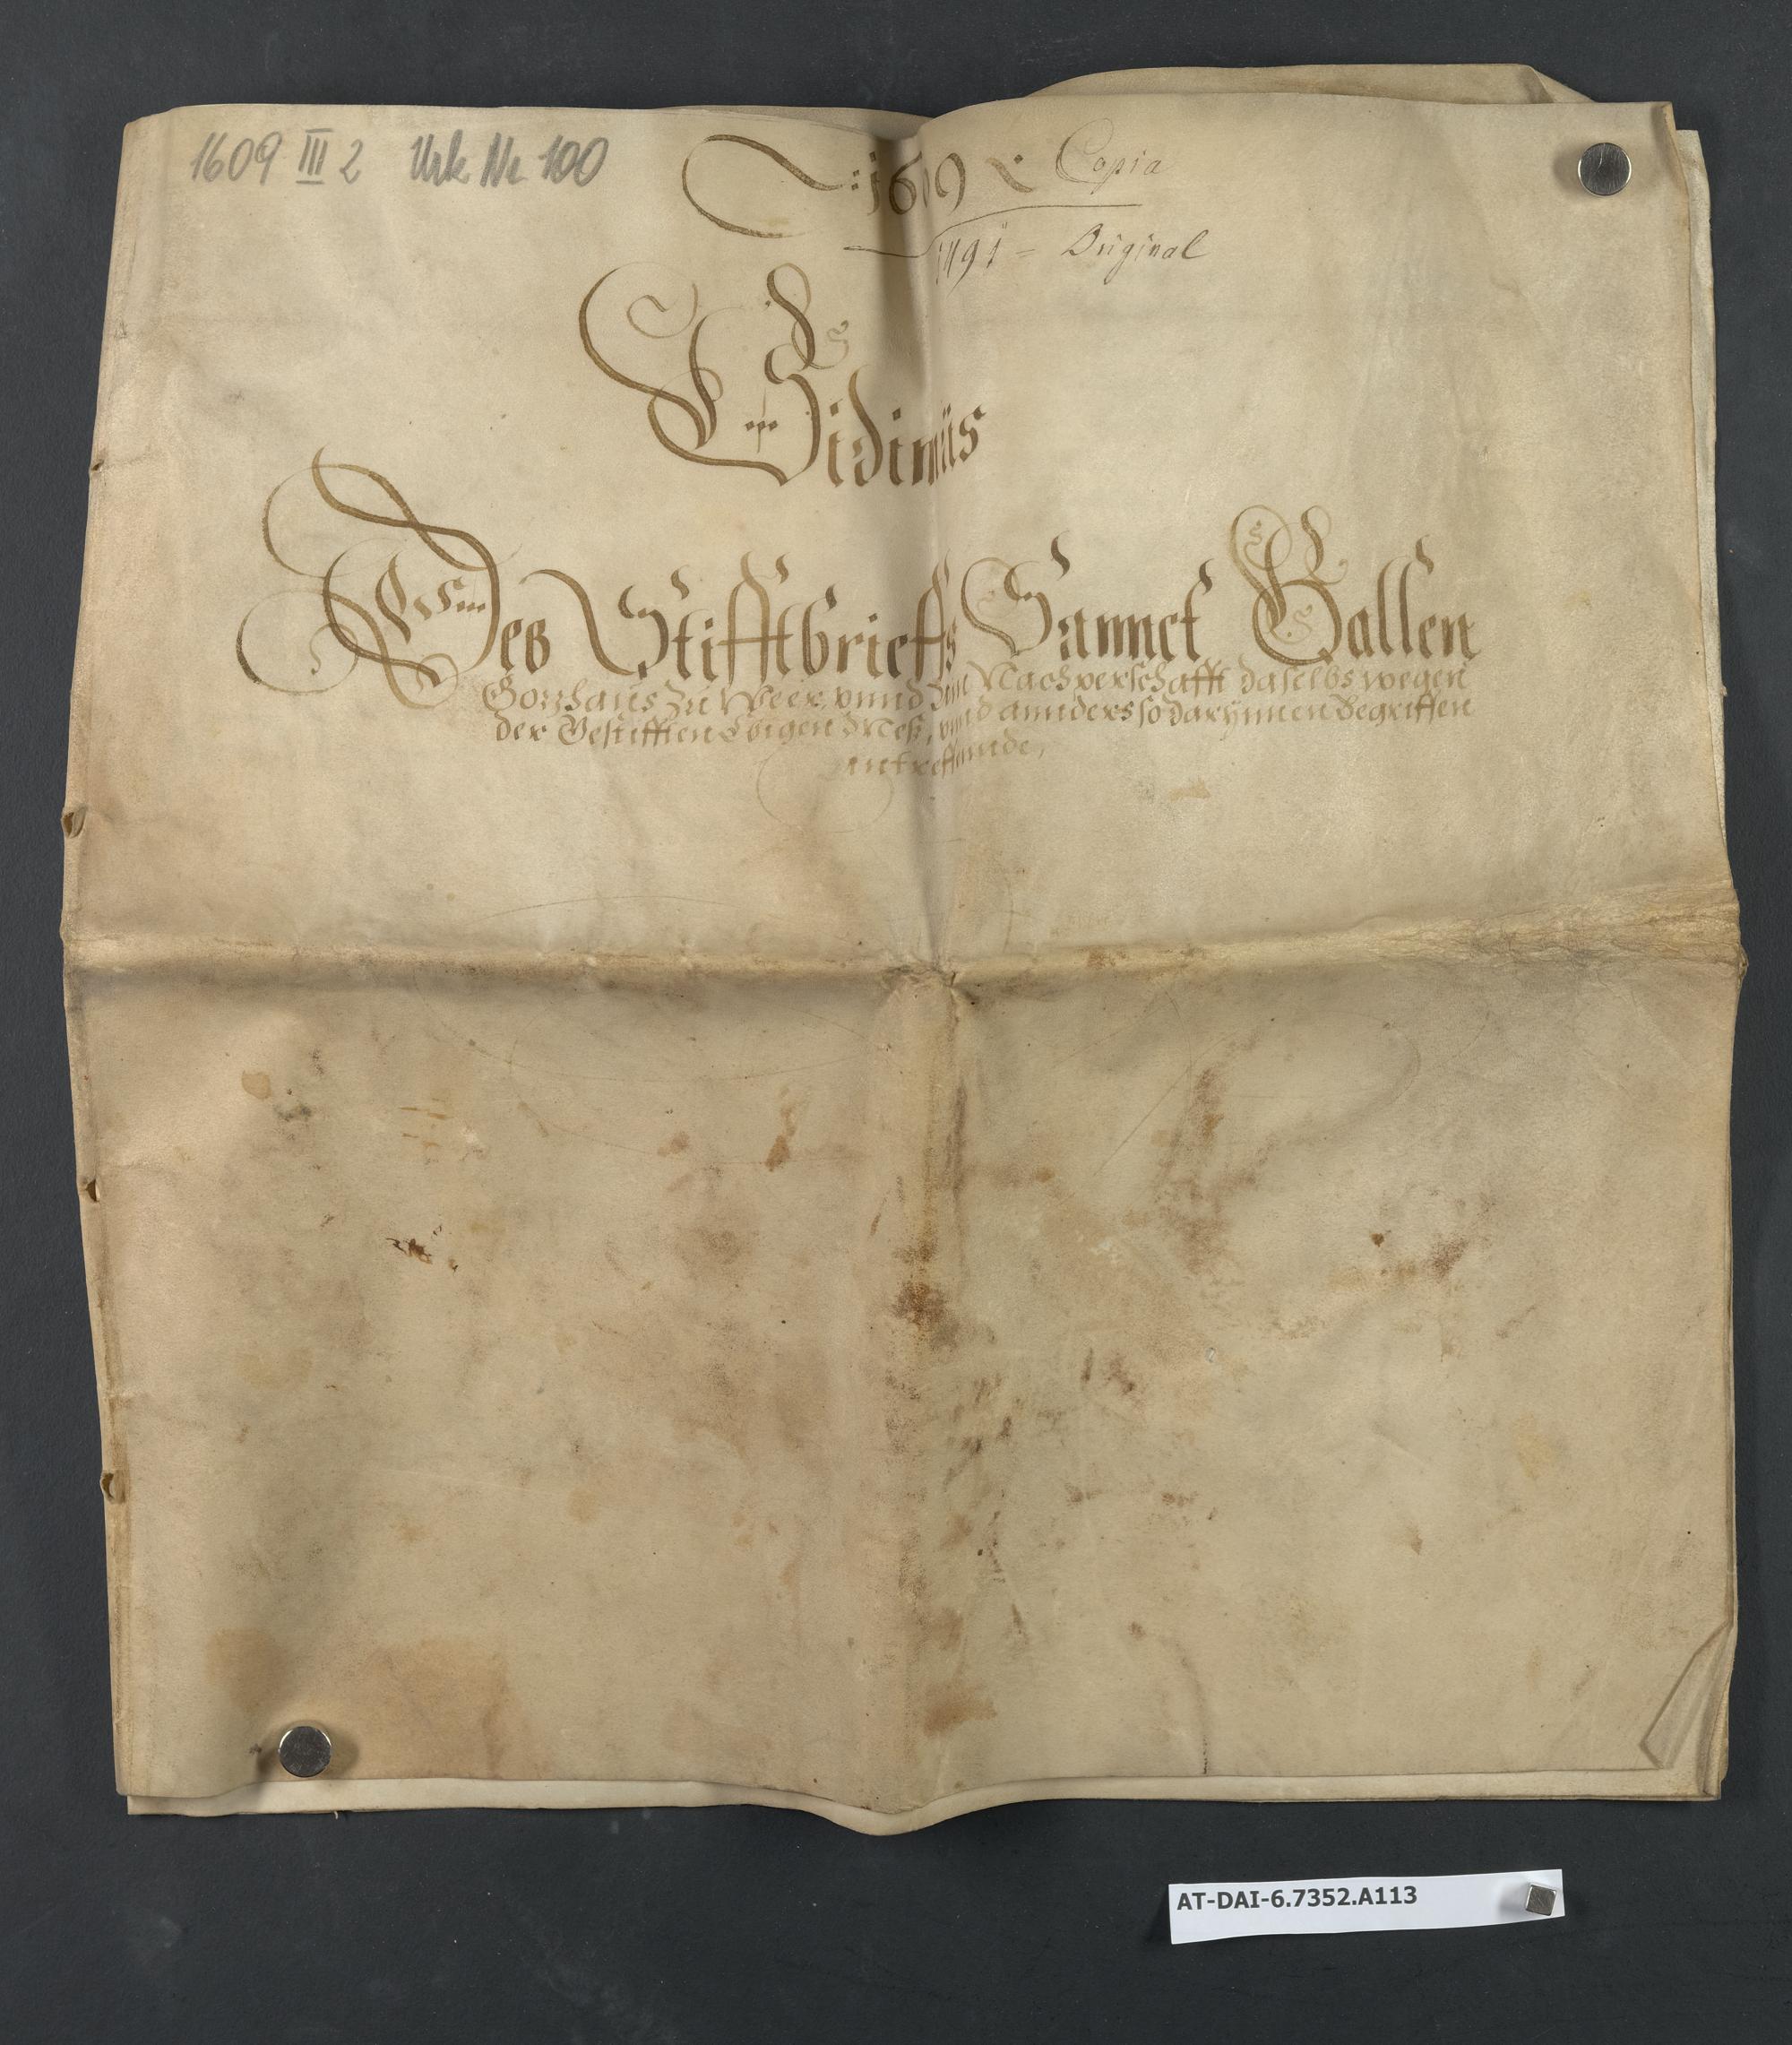 1609 III 2 Urk Nr. 100
: 1609 : Copia
1491 = Original
Vidimus
Des Stifftbrieffs Sannct Gallen
Gotzhaus zu Weer, unnd dem Nachperschafft daselbs wegen
der Gestifften Ewigen Meß, unnd annders so darynnen begriffen
antreffennde,
AT-DAI-6.7352.A113